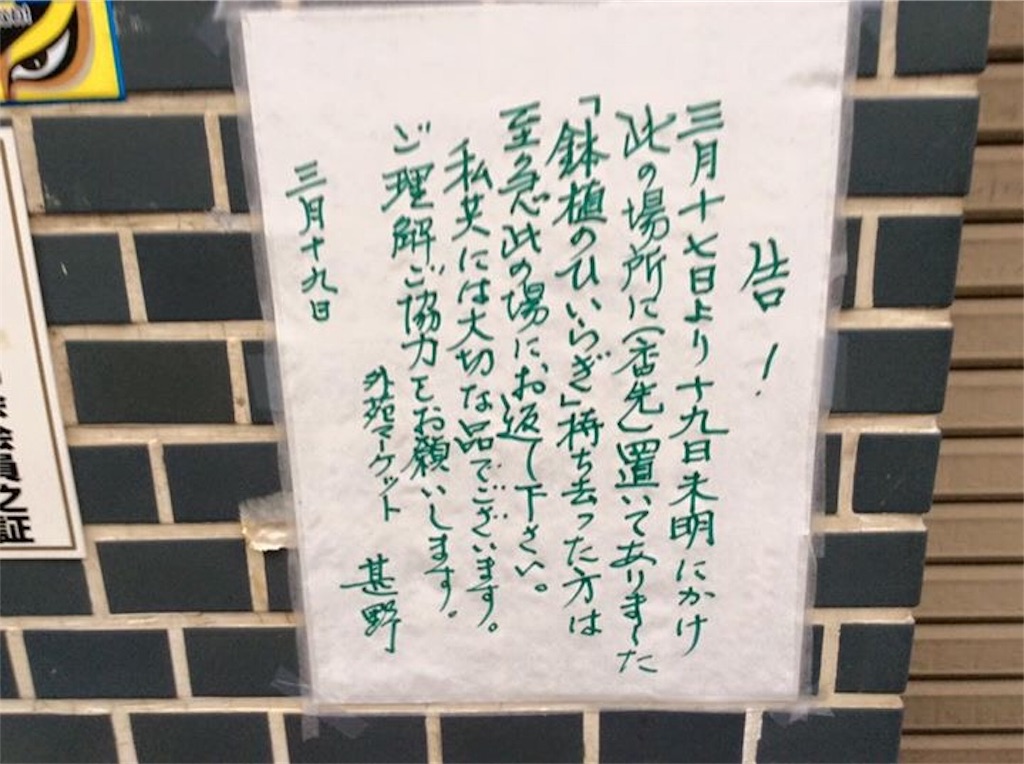 告!
三月十七日より十九日未明にかけ
此の場所に(店先)置いてありました
「鉢植のひいらぎ」持ち去った方は
至急此の場に、お返し下さい。
私共には大切な品でございます。
ご理解ご協力をお願いします。
外苑マーケット 甚野
三月十九日
会員之証